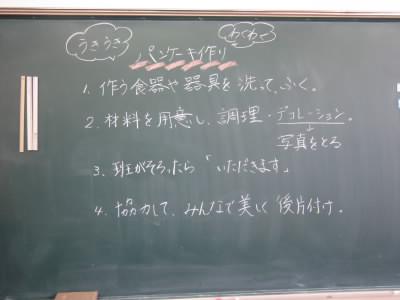 うきうき
パンケーキ作り
わくわく
1. 作う食器や器具を洗って、ふく。
2. 材料を用意し、調理・デコレーション。
写真をとる
3. 班がそろったら「いただきます」
4. 協力して、みんなで美しく後片付け。